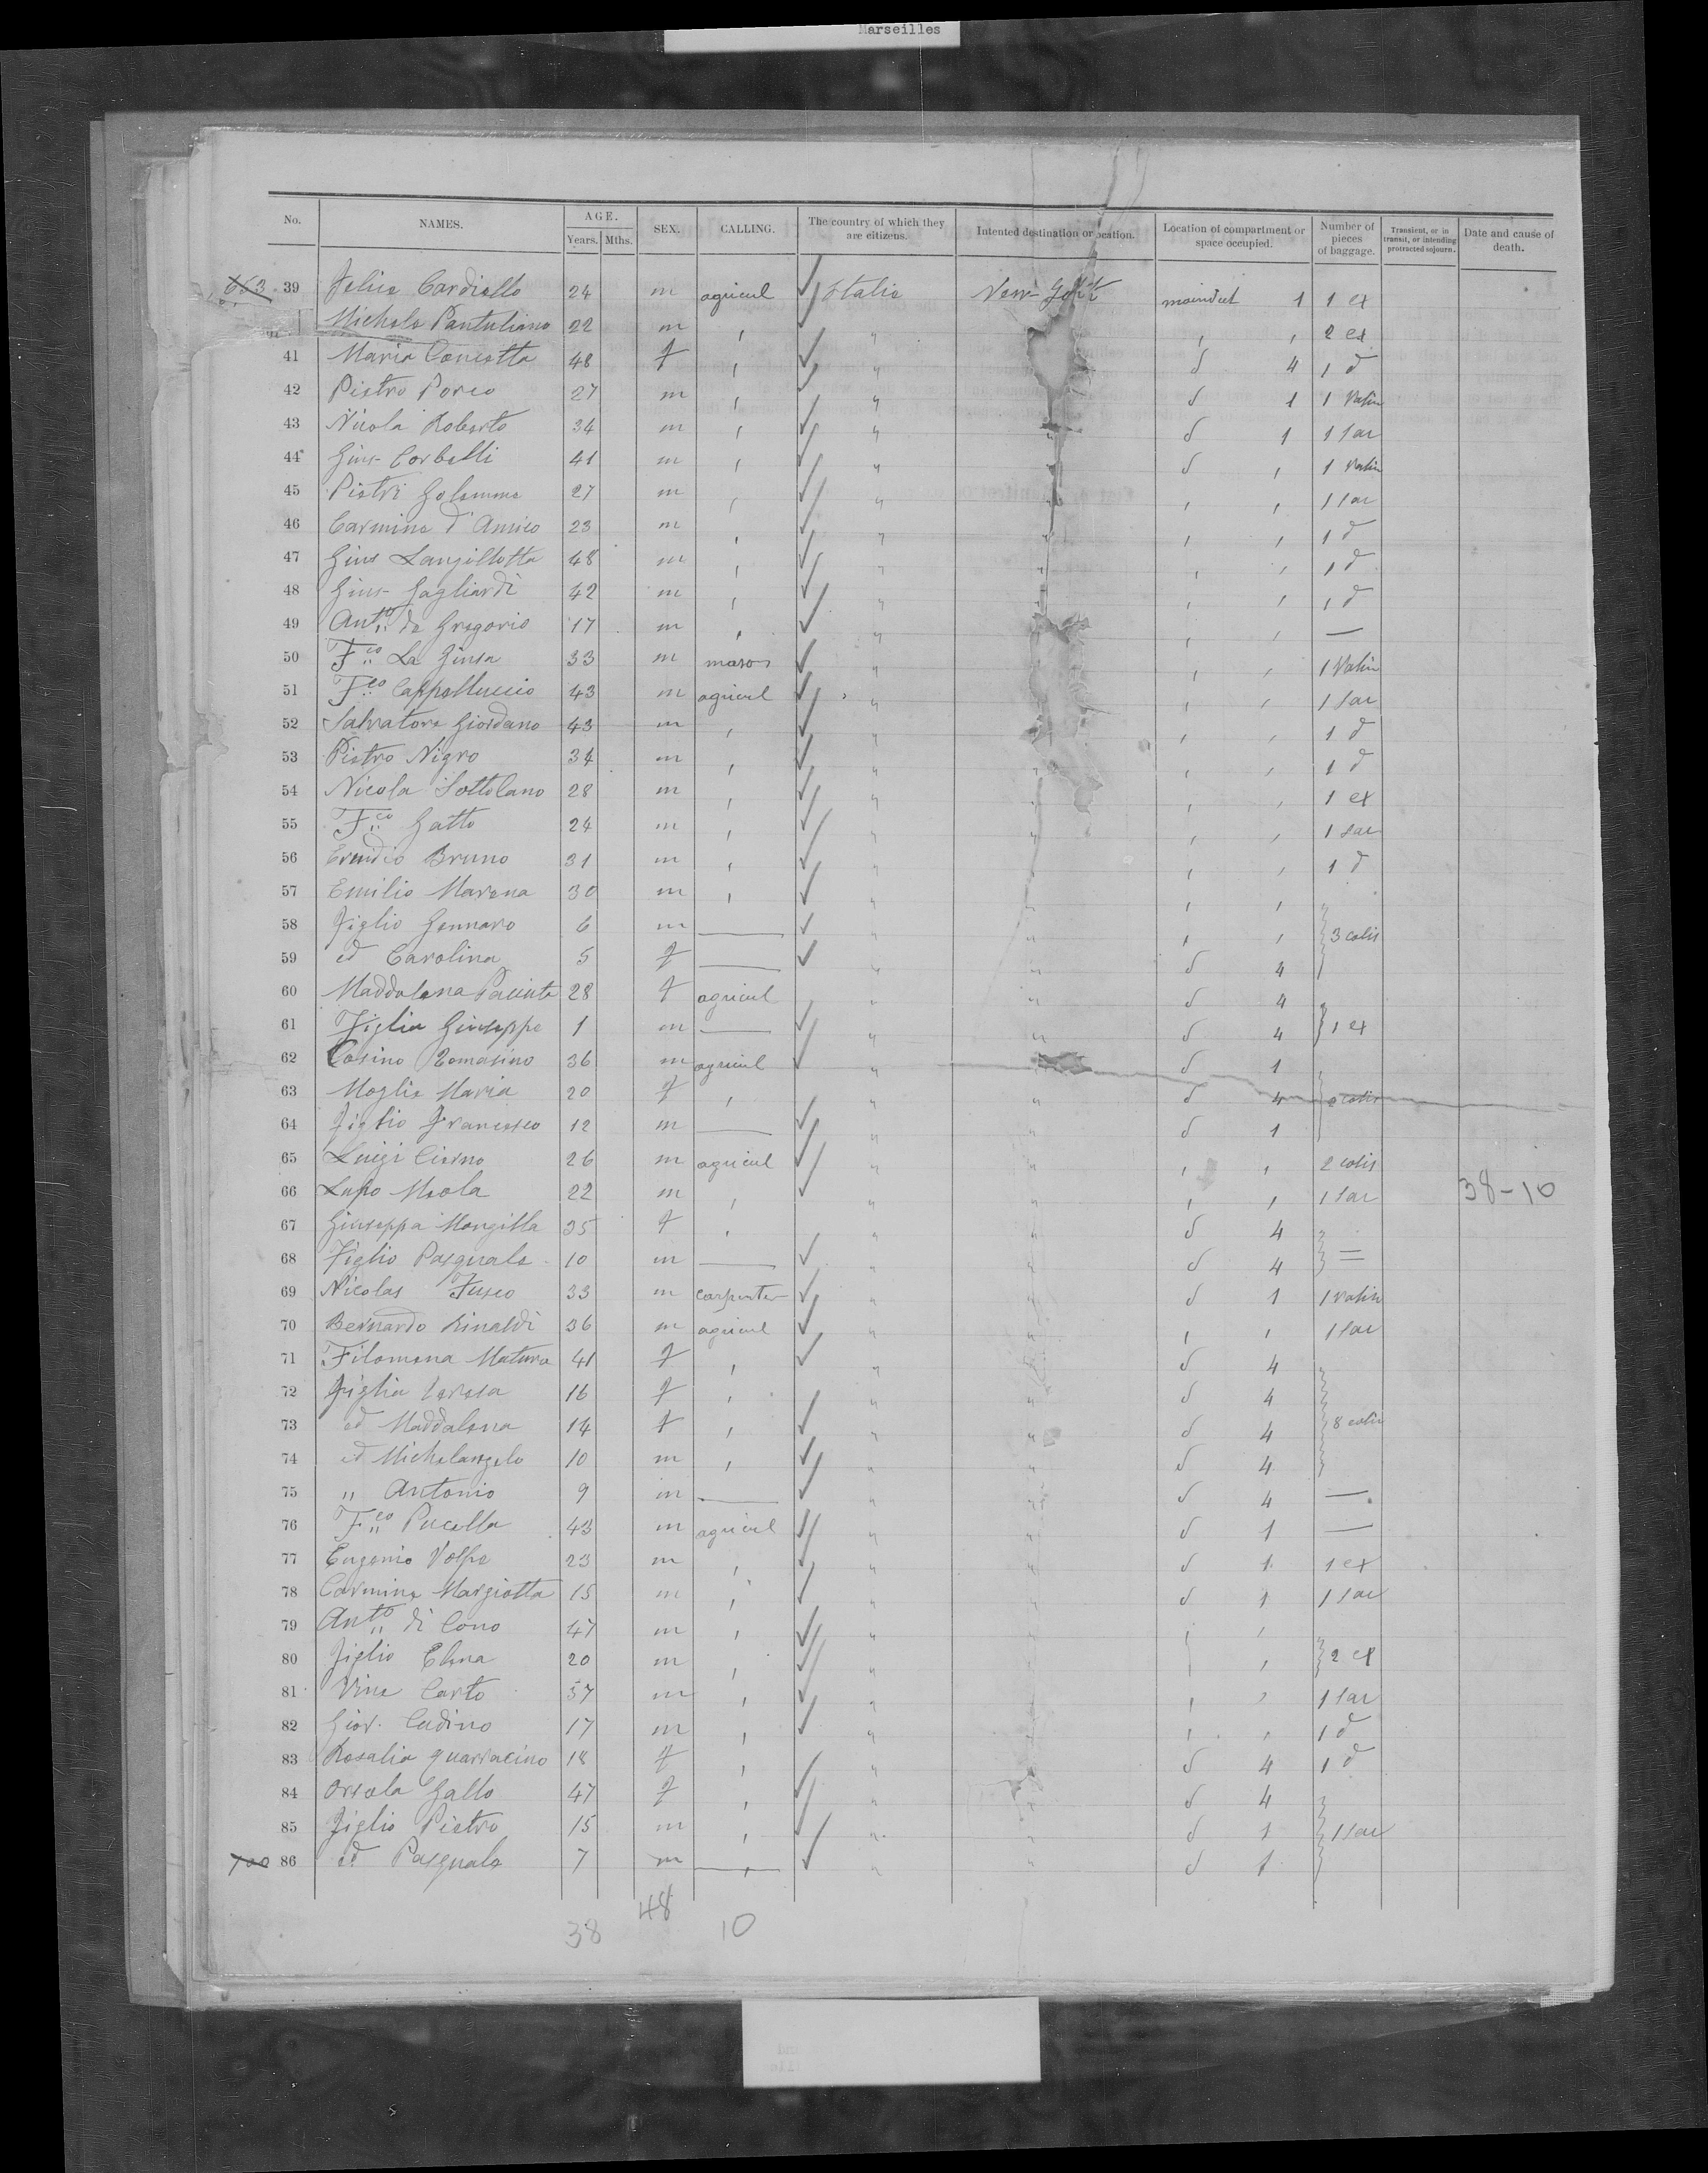 Marseilles
No. NAMES. AGE. Years. Mths. SEX. CALLING. The country of which they are citizens. Intented destination or location. Location of compartment or space occupied. Number of pieces of baggage. Transient, or in transit, or intending protracted sojourn. Date and cause of death.
663 39 Felice Cardiello 24 m agricul Italie New-York 1 1 ex
Michele Pantuliano 22 m , " , , 2 ex
41 Maria Concetta 48 f , " d 4 1 d
42 Pietro Porco 27 m , " d 1 1 Valin
43 Nicola Roberto 34 m , " d 1 1 sac
44 Gius- Corbelli 41 m , " d , 1 Valin
45 Pietri Golemme 27 m , " , , 1 sac
46 Carmine d'Amico 23 m , " , , 1 d
47 Gius Langillotta 48 m , " , , 1 d
48 Gius- Gagliardi 42 m , " , , 1 d
49 Anto de Gregorio 17 m , " , , —
50 Fco La Giusa 33 m mason " , , 1 Valin
51 Fco Cappelluccio 43 m agricul " , , 1 sac
52 Salvatore Giordano 43 m , " , , 1 d
53 Pietro Nigro 34 m , " , , 1 d
54 Nicola Sottolano 28 m , " , , 1 ex
55 Fco Gatto 24 m , " " , , 1 sac
56 Emidio Bruno 31 m , " " , , 1 d
57 Emilio Marena 30 m , " " , ,
58 Figlio Gennaro 6 m — " " , , 3 colis
59 id Carolina 5 f — " " d 4
60 Maddalena Pacinta 28 f agricul " " d 4
61 Figlia Giuseppe 1 m — " " d 4 1 ex
62 Cosino Tomasino 36 m agricul " " d 1
63 Moglie Maria 20 f , " " d 4 colis
64 Figlio Francesco 12 m — " " d 1
65 Luigi Cirno 26 m agricul " " , , 2 colis
66 Lupo Meola 22 m , " " , , 1 sac 38-10
67 Giuseppa Mongilla 35 f , " " d 4
68 Figlio Pasquale 10 m — " " d 4 =
69 Nicolas Fusco 33 m carpenter " " d 1 1 valin
70 Bernardo Rinaldi 36 m agricul " " , , 1 sac
71 Filomena Matura 41 f , " " d 4
72 Figlia Teresa 16 f , " " d 4
73 id Maddalena 14 f , " " d 4 8 colis
74 id Michelangelo 10 m , " " d 4
75 " Antonio 9 m — " " d 4 —
76 Fco Pucella 43 m agricul " " d 1 —
77 Eugenio Volpe 23 m , " " d 1 1 ex
78 Carmine Margiotta 15 m , " " d 1 1 sac
79 Anto di Cono 47 m , " " , ,
80 Figlio Elena 20 m , " " , , 2 ex
81 Vinc Carto 57 m , " " , , 1 sac
82 Giov. Cudino 17 m , " " , , 1 d
83 Rosalia Quarracino 18 f , " " d 4 1 d
84 Orsola Gallo 47 f , " " d 4
85 Figlio Pietro 15 m , " " d 1 1 sac
700 86 id Pasquale 7 m — " " d 1
38 48 10